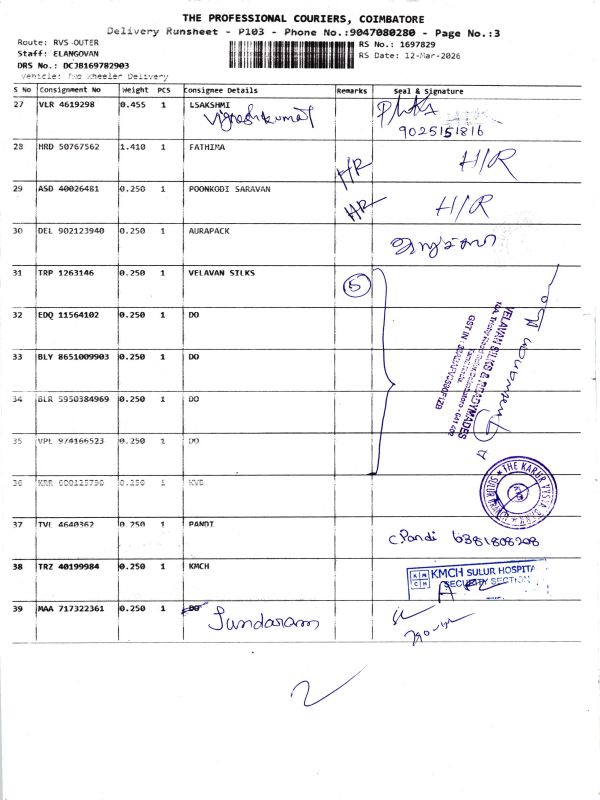 THE PROFESSIONAL COURIERS, COIMBATORE
Delivery Runsheet - P103 - Phone No.:9047080280 - Page No.:3
Route: RVS-OUTER
Staff: ELANGOVAN
DRS No.: DCJB169782903
Vehicle: Two Wheeler Delivery
RS No.: 1697829
RS Date: 12-Mar-2026
S No Consignment No Weight PCS Consignee Details Remarks Seal & Signature
27 VLR 4619298 0.455 1 LSAKSHMI
Vigneshkumar
9025151816
28 HRD 50767562 1.410 1 FATHIMA HR H/R
29 ASD 40026481 0.250 1 POONKODI SARAVAN HR H/R
30 DEL 902123940 0.250 1 AURAPACK
31 TRP 1263146 0.250 1 VELAVAN SILKS 5
32 EDQ 11564102 0.250 1 DO
33 BLY 8651009903 0.250 1 DO
34 BLR 5950384969 0.250 1 DO
35 VPL 974166523 0.250 1 DO
VELAVAN SILKS & READYMADES
36 KRR 600125790 0.250 1 KVB
THE KARUR VYSYA BANK
SULUR
37 TVL 4640362 0.250 1 PANDI
C.Pandi 6381808208
38 TRZ 40199984 0.250 1 KMCH
KMCH SULUR HOSPITA
SECURITY SECTION
39 MAA 717322361 0.250 1 DO
Sundaram